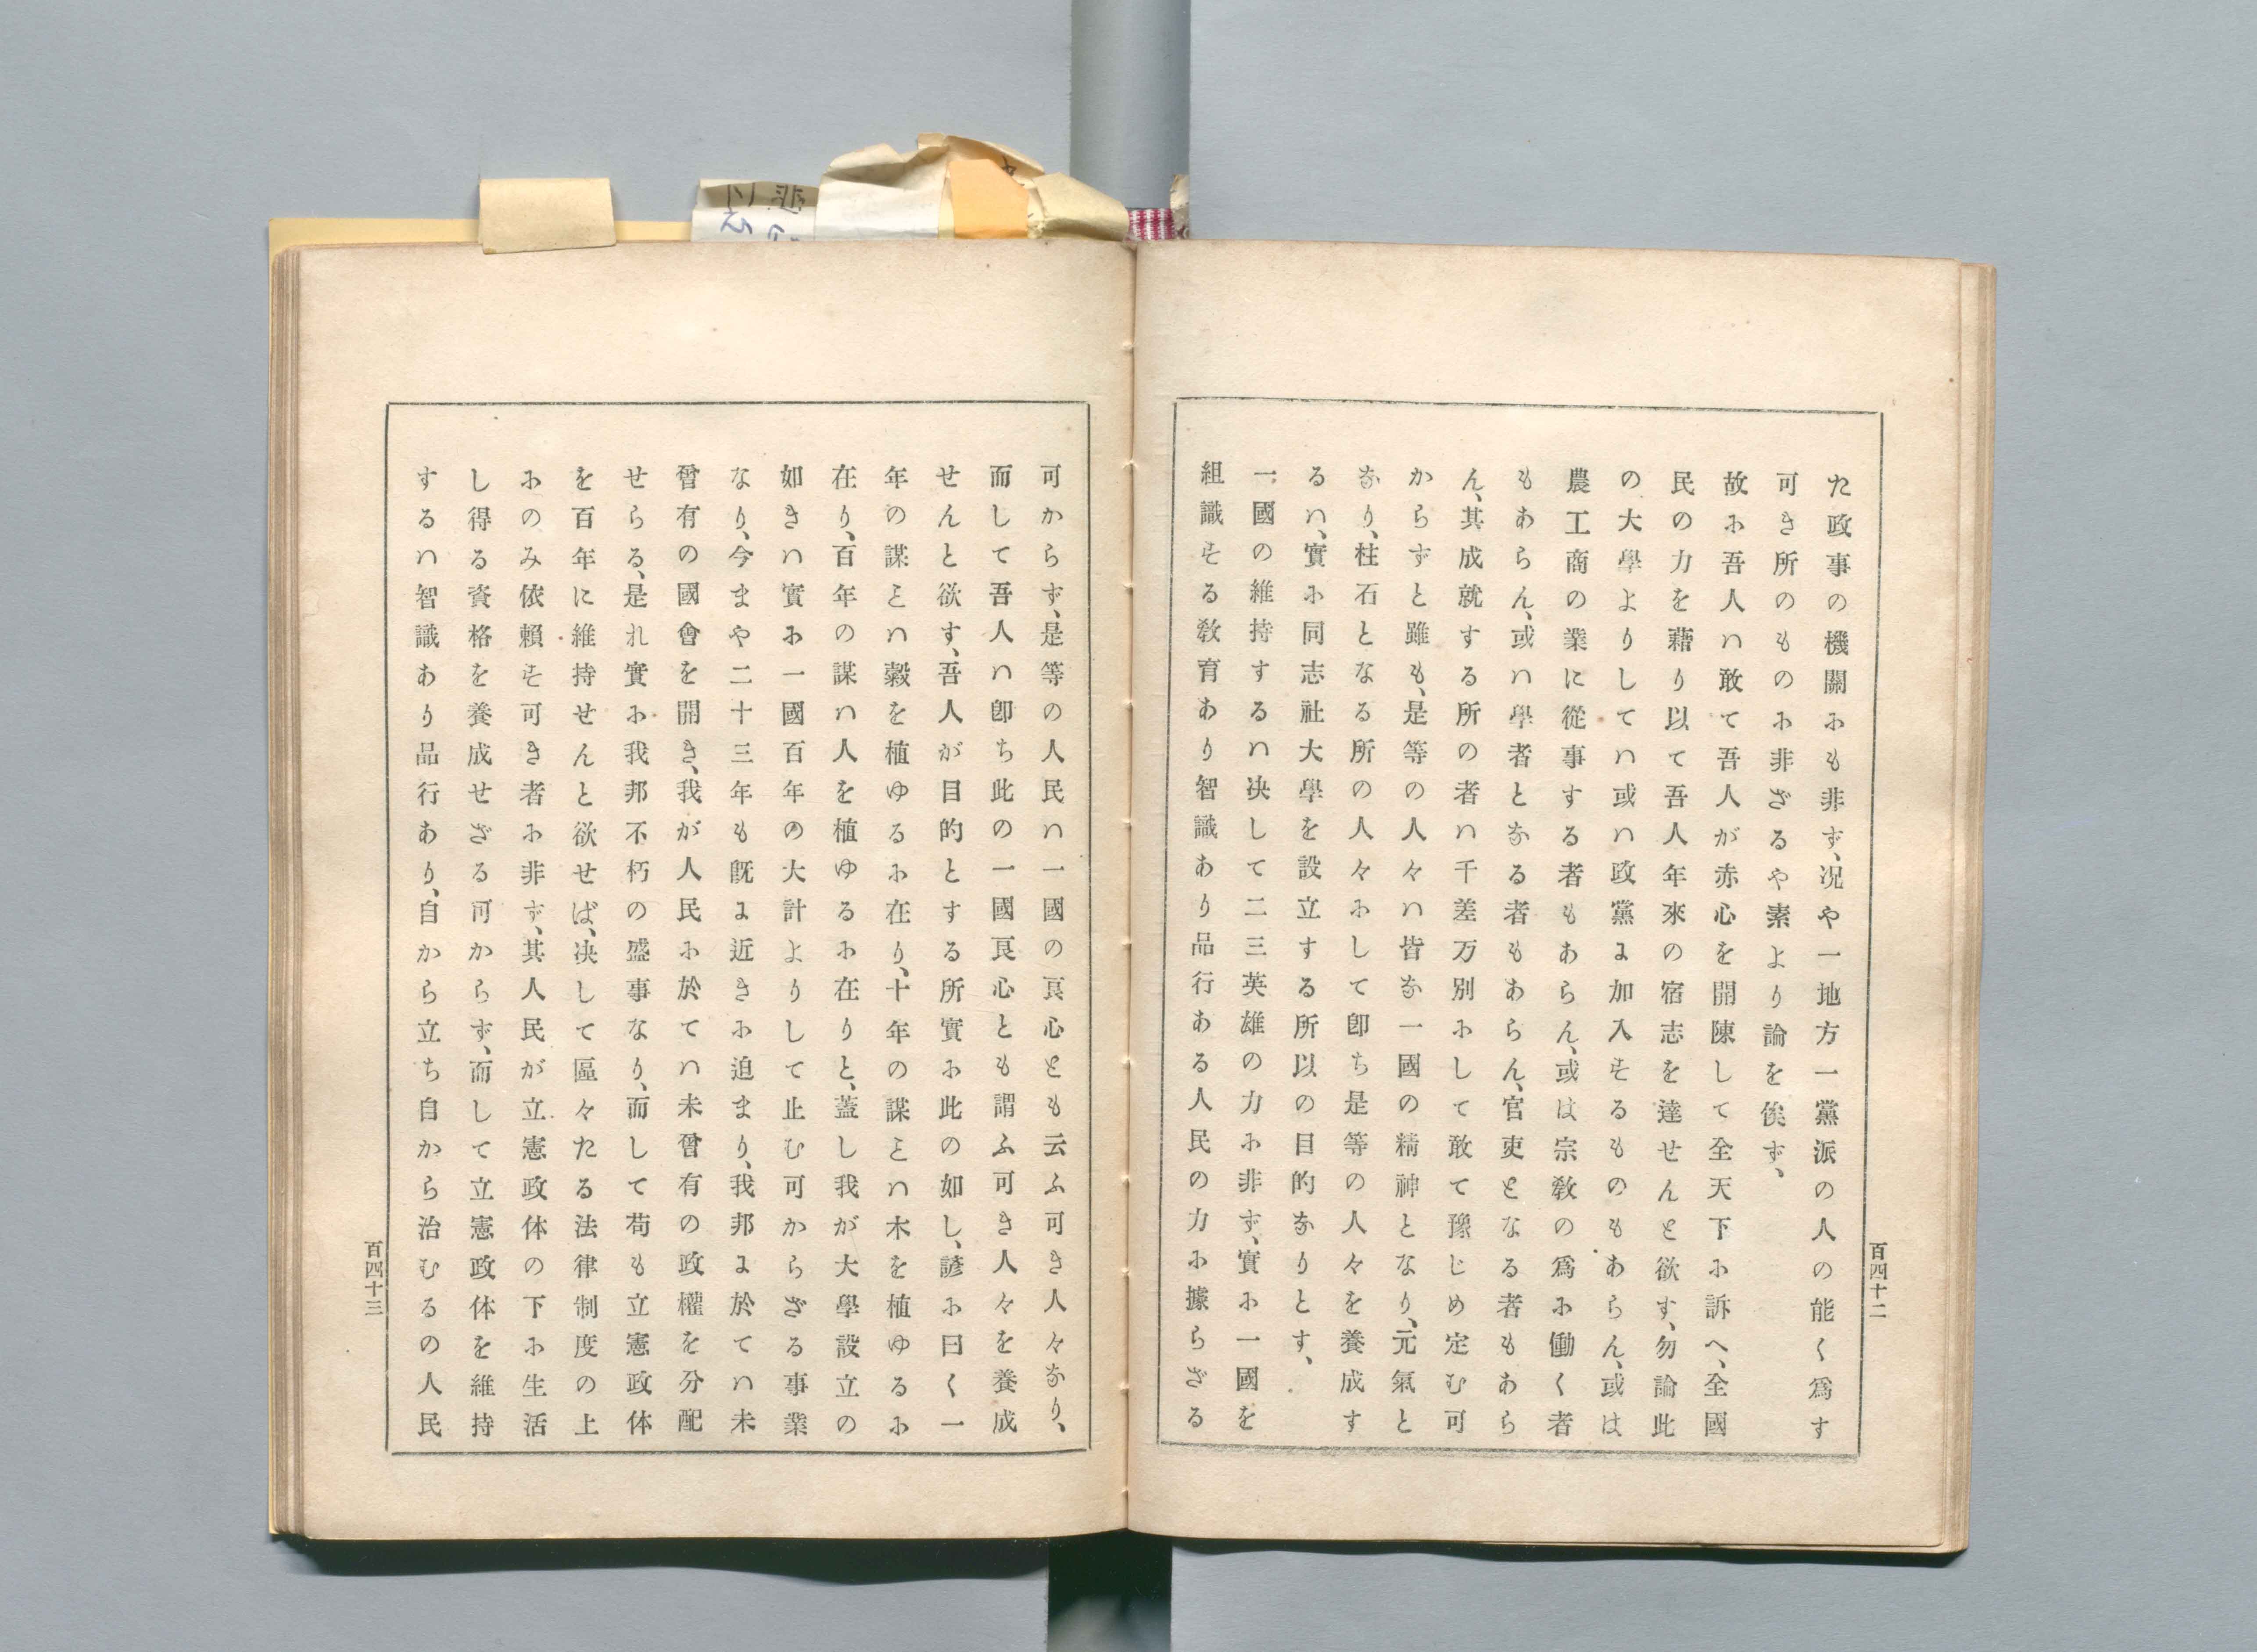 た政事の機關にも非ず、况や一地方一黨派の人の能く爲す
可き所のものに非ざるや素より論を俟ず、
故に吾人ハ敢て吾人が赤心を開陳して全天下に訴へ、全國
民の力を藉り以て吾人年來の宿志を達せんと欲す、勿論此
の大學よりしてハ或ハ政黨に加入するものもあらん、或は
農工商の業に從事する者もあらん、或は宗敎の爲に働く者
もあらん、或ハ學者となる者もあらん、官吏となる者もあら
ん、其成就する所の者ハ千差万別にして敢て豫じめ定む可
からずと雖も、是等の人々ハ皆な一國の精神となり、元氣と
なり、柱石となる所の人々にして卽ち是等の人々を養成す
るハ、實に同志社大學を設立する所以の目的なりとす、
一國の維持するハ决して二三英雄の力に非ず、實に一國を
組識する敎育あり智識あり品行ある人民の力に據らざる
百四十二
可からず、是等の人民ハ一國の良心とも云ふ可き人々なり、
而して吾人ハ卽ち此の一國良心とも謂ふ可き人々を養成
せんと欲す、吾人が目的とする所實に此の如し、諺に曰く一
年の謀とハ穀を植ゆるに在り、十年の謀とハ木を植ゆるに
在り、百年の謀ハ人を植ゆるに在りと、蓋し我が大學設立の
如きハ實に一國百年の大計よりして止む可からざる事業
なり、今まや二十三年も旣に近きに迫まり、我邦に於てハ未
曾有の國會を開き、我が人民に於てハ未曾有の政權を分配
せらる、是れ實に我邦不朽の盛事なり、而して苟も立憲政体
を百年に維持せんと欲せば、决して區々たる法律制度の上
にのみ依賴す可き者に非ず、其人民が立憲政体の下に生活
し得る資格を養成せざる可からず、而して立憲政体を維持
するハ智識あり品行あり、自から立ち自から治むるの人民
百四十三